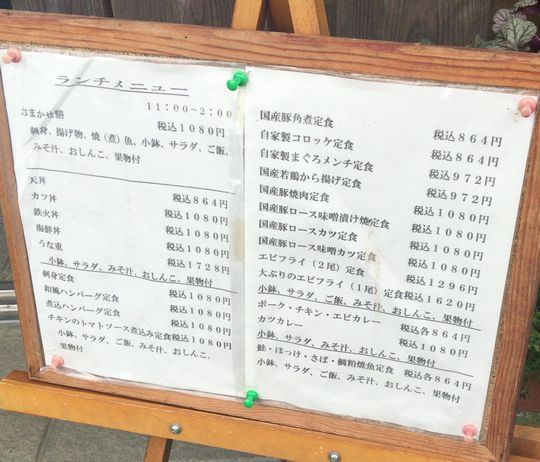 ランチメニュー
11:00~2:00
おまかせ膳 税込1080円
刺身、揚げ物、焼(煮)魚、小鉢、サラダ、ご飯、
みそ汁、おしんこ、果物付
天丼 税込864円
カツ丼 税込1080円
鉄火丼 税込1080円
海鮮丼 税込1080円
うな重 税込1728円
小鉢、サラダ、みそ汁、おしんこ、果物付
刺身定食 税込1080円
和風ハンバーグ定食 税込1080円
煮込ハンバーグ定食 税込1080円
チキンのトマトソース煮込み定食税込1080円
小鉢、サラダ、ご飯、みそ汁、おしんこ、
果物付
国産豚角煮定食 税込864円
自家製コロッケ定食 税込864円
自家製まぐろメンチ定食 税込972円
国産若鶏から揚げ定食 税込972円
国産豚焼肉定食 税込1080円
国産豚ロース味噌漬け焼定食 税込1080円
国産豚ロースカツ定食 税込1080円
国産豚ロース味噌カツ定食 税込1080円
エビフライ(2尾)定食 税込1296円
大ぶりのエビフライ(1尾)定食 税込1620円
小鉢、サラダ、ご飯、みそ汁、おしんこ、果物付
ポーク・チキン・エビカレー 税込各864円
カツカレー 税込1080円
小鉢、サラダ、みそ汁、おしんこ、果物付
鮭・ほっけ・さば・鯛粕焼魚定食 税込各864円
小鉢、サラダ、ご飯、みそ汁、おしんこ、果物付